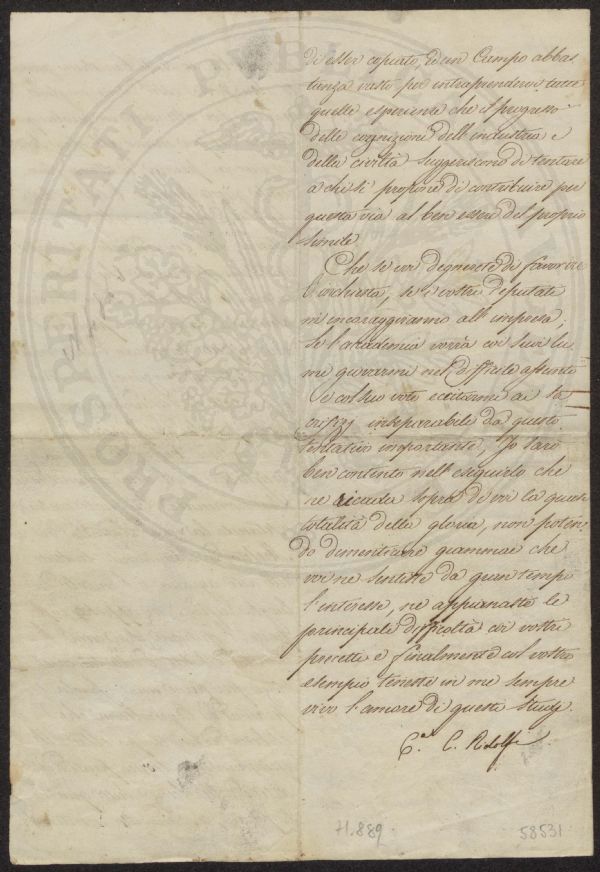 di esser coperto, ed un Campo abbas
tanza vasto per intraprendervi tutte
quelle esperienze che il progresso
delle cognizione dell'industria e
della civiltà suggeriscono di tentare
a chi si propone di contribuire per
questa via al ben essere del proprio
simile.
Che se voi degnerete di favorire
l'inchiesta, se i vostri deputati
m'incoraggiranno all'impresa,
se l'accademia vorrà coi suoi lu
me giovarmi nel difficile assunto
e col suo voto eccitarmi ai sa
crifizj inseparabile da questo
tentativo importante, Io sarò
ben contento nell'eseguirlo che
ne ricada sopra di voi la quasi
totalità della gloria, non poten
do dimenticare giammai che
voi ne sentiste da gran tempo
l'interesse, ne appianaste le
principale difficoltà coi vostri
precetti e finalmente col vostro
esempio teneste in me sempre
vivo l'amore di questi studj.
C. Ridolfi
71.889
58531
PROSPERITATI PUBL